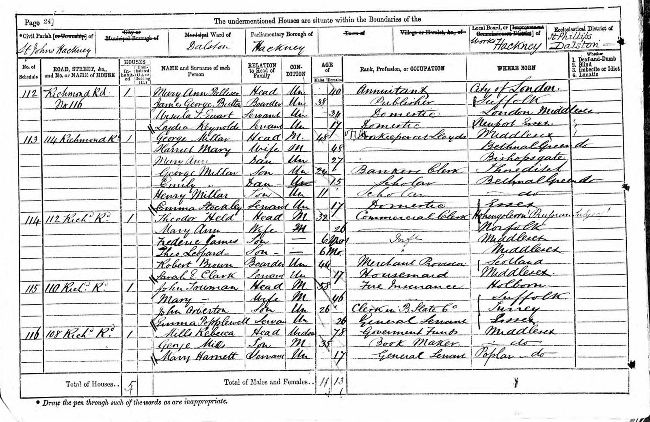 Page 29] The undermentioned Houses are situate within the Boundaries of the
*Civil Parish [or Township] of City or Municipal Borough of Municipal Ward of Parliamentary Borough of Town of Village or Hamlet, &c., of Local Board, or Ecclesiastical District of
St Johns Hackney Dalston Hackney Works Hackney St Phillips Dalston
No. of Schedule ROAD, STREET, &c., and No. or NAME of HOUSE HOUSES NAME and Surname of each Person RELATION to Head of Family CONDITION AGE of Males Females Rank, Profession, or OCCUPATION WHERE BORN 1. Deaf-and-Dumb 2. Blind 3. Imbecile or Idiot 4. Lunatic
112 Richmond Rd 1 Mary Ann Head Un 40 Annuitant City of London
No 116 James George Boarder Un 38 Publisher Suffolk
Ursula Servant Un 24 Domestic London Middlesex
Laydia Reynolds Servant Un 17 Domestic Essex
113 114 Richmond Rd 1 George Millar Head M 48 Bookkeeper Lloyds Middlesex
Harriet Mary Wife M 48 Bethnal Green do
Mary Ann Dau Un 27 Bishopsgate
George Millar Son Un 24 Bankers Clerk Shoreditch
Emily Dau 15 Scholar Bethnal Green do
Henry Millar Son Un 11 Scholar
Emma Stockley Servant Un 17 Domestic Essex
114 112 Richd Rd 1 Theodor Held Head M 32 Commercial Clerk Prussian
Mary Ann Wife M 26 Norfolk
Frederic James Son — 6 Middlesex
Theo Leopold Son — 6 Mo Middlesex
Robert Brown Boarder Un 44 Merchant Scotland
Sarah E Clark Servant Un 17 Housemaid Middlesex
115 110 Richd Rd 1 John Head M 53 Fire Insurance Holborn
Mary — Wife M 46 Suffolk
John Overton Son Un 26 Clerk in Surrey
Emma Popplewell Servan Un 26 General Servant Essex
116 108 Richd Rd 1 Mills Rebecca Head Widow 78 Goverment Funds Middlesex
George Mills Son M 35 Book Maker — do
Mary Harnett Servant Un 17 General Servan Poplar — do
Total of Houses... 5 Total of Males and Females... 11 13
* Draw the pen through such of the words as are inappropriate.